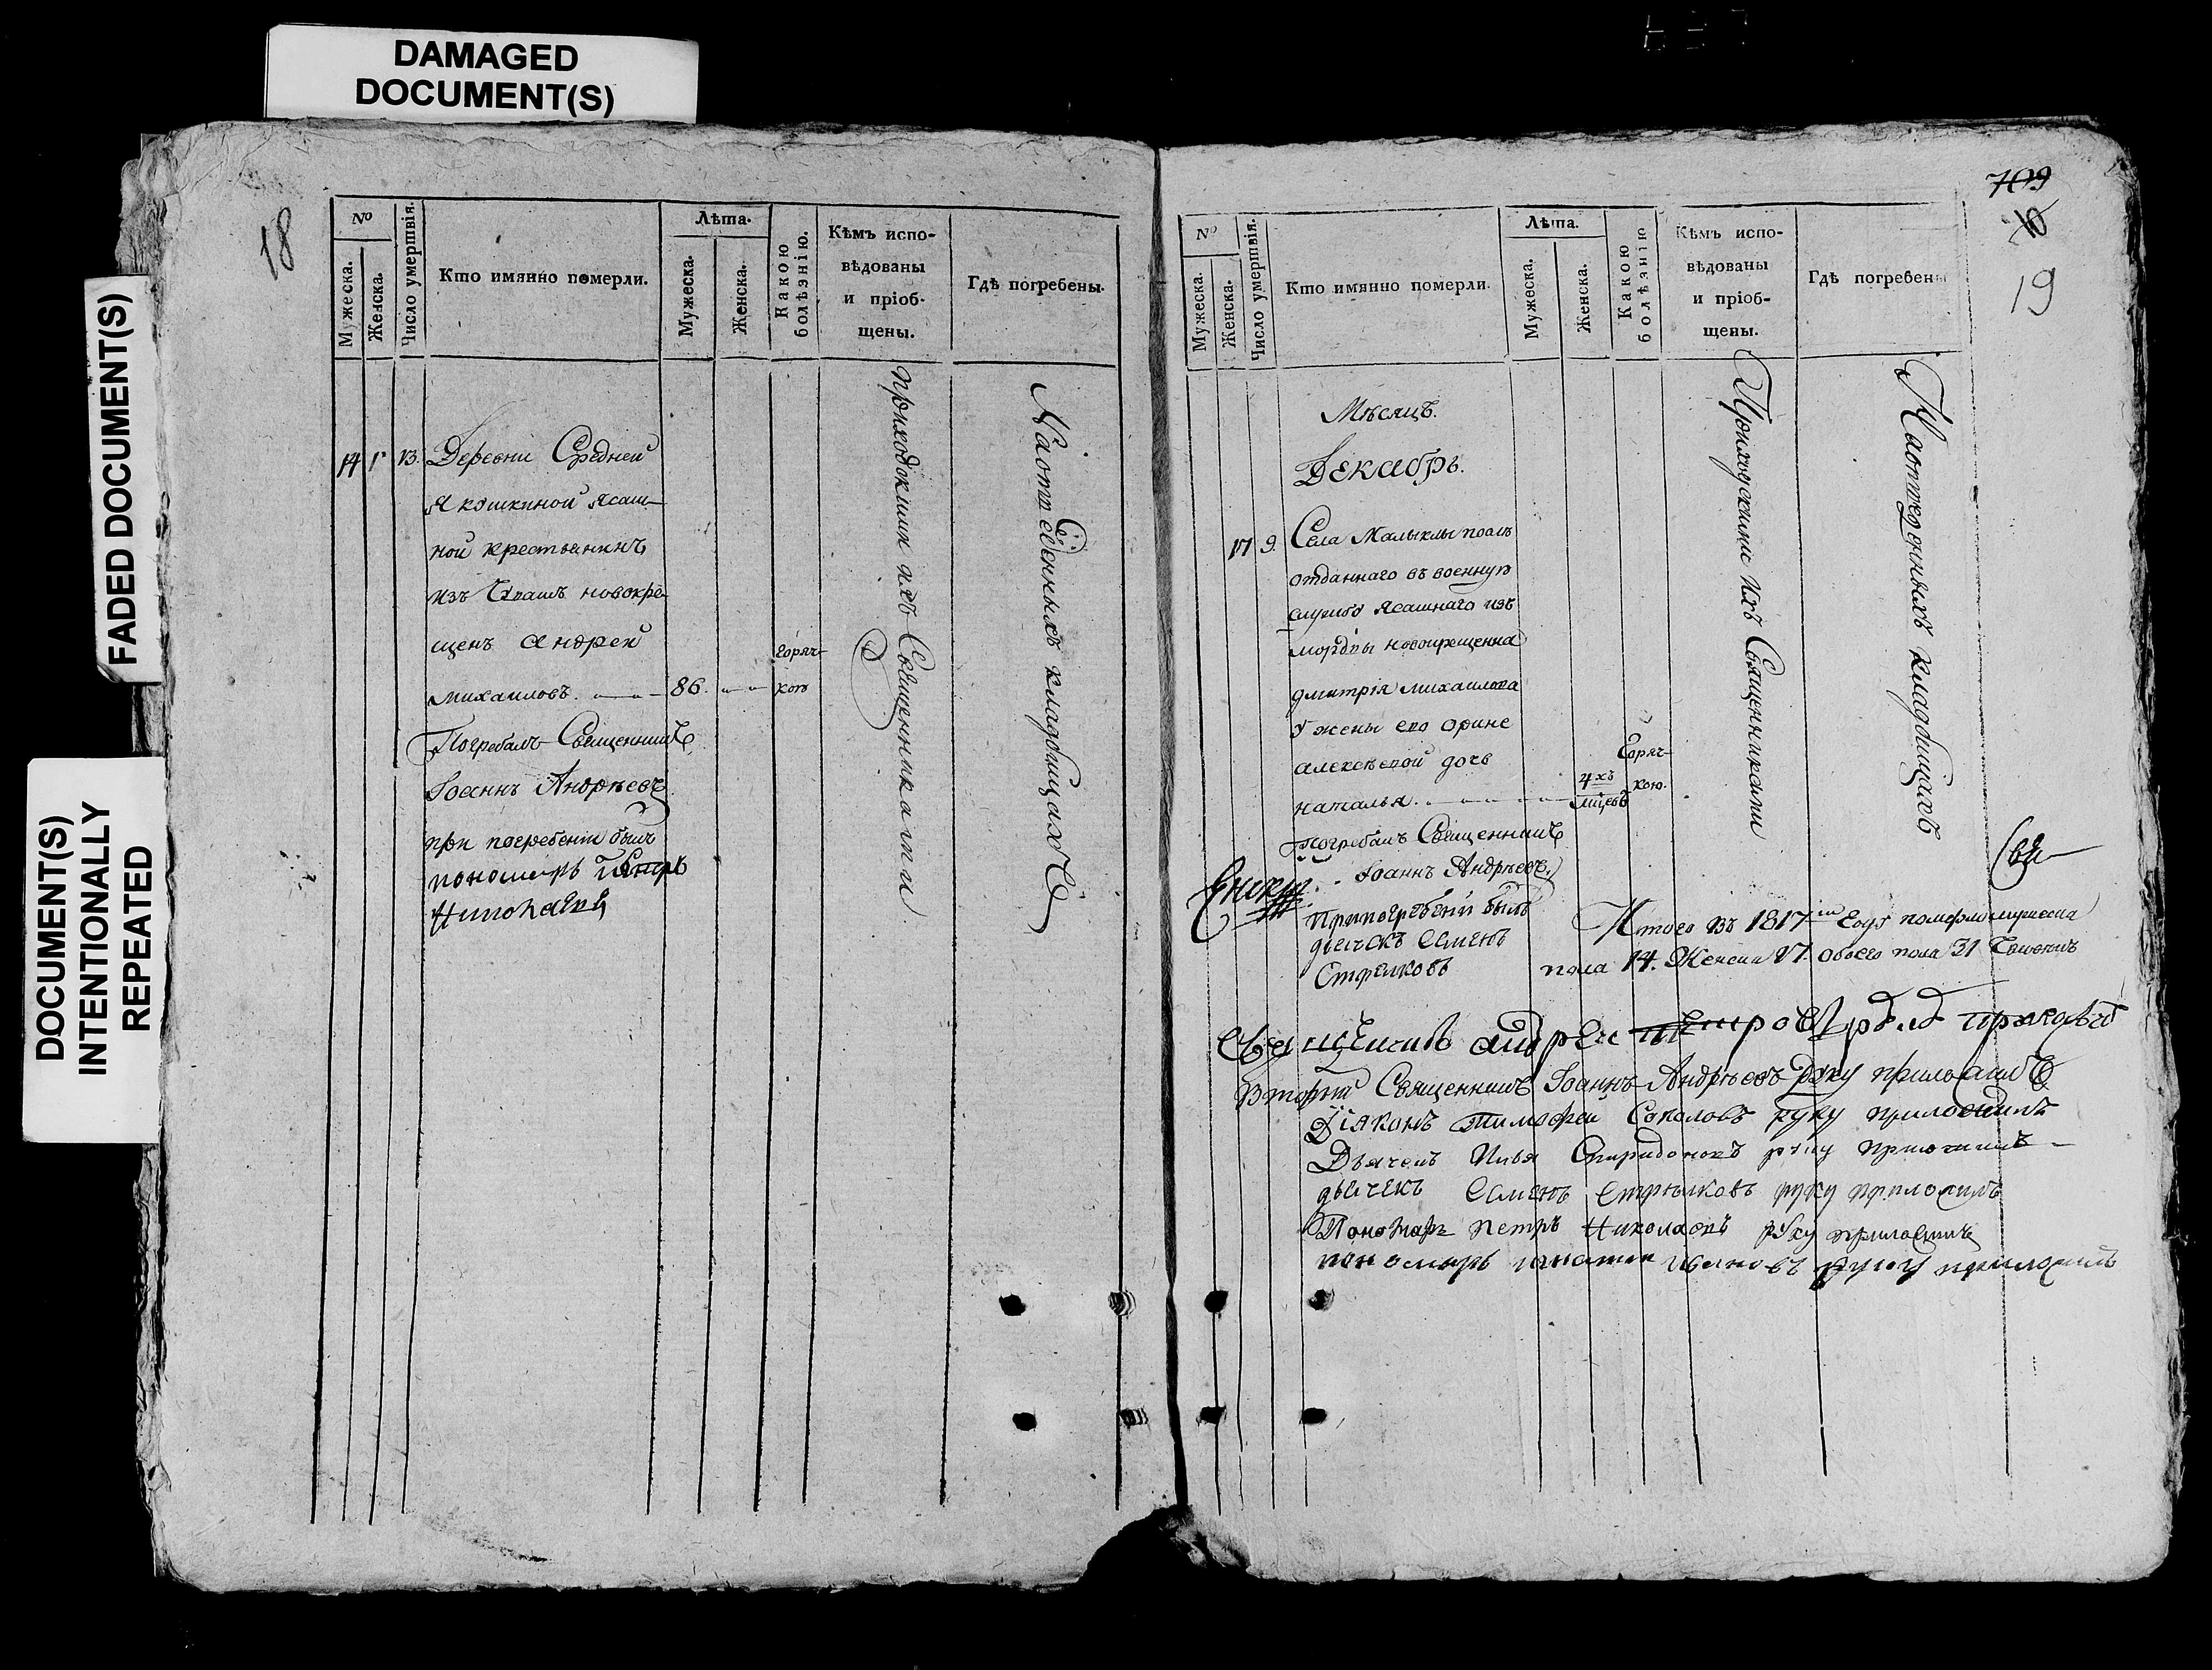 DAMAGED
DOCUMENT(S)
FADED DOCUMENT(S)
DOCUMENT(S)
INTENTIONALLY
REPEATED
18
№
Мужеска.
Женска.
Число умертвія.
Кто имянно померли.
Лѣта.
Мужеска.
Женска.
Какою
болѣзнію.
Кѣмъ испо-
вѣдованы
и пріоб-
щены.
Гдѣ погребены.
14
13.
Деревни Средней
Якошкиной Ясаш-
ной крестьянинъ
изъ Чувашъ новокре-
щенъ Андрей
Михаиловъ. 86.
горяч-
кою
Погребалъ Священникъ
Іоаннъ Андрѣевъ
при погребеніи былъ
пономарь Петръ
Николаевъ
Приходскими ихъ Священниками
На отведенныхъ кладбищахъ
709
10
19
№
Мужеска.
Женска.
Число умертвія.
Кто имянно померли.
Лѣта.
Мужеска.
Женска.
Какою
болѣзнію
Кѣмъ испо-
вѣдованы
и пріоб-
щены.
Гдѣ погребены
Мѣсяцъ.
Декабрь.
17 9. Села Малыклы
отданнаго въ военную
службу Ясашнаго изъ
мордвы новокрещенна
дмитрія михаилова
у жены его орине
алексѣевой дочь
наталья. 4хъ
мцовъ
Горяч-
кою.
Погребалъ Священникъ
Іоаннъ Андрѣевъ.
При погребеніи былъ
дьячекъ Семенъ
Стрелковъ
Приходскими ихъ Священниками
На отведенныхъ кладбищахъ
Свя-
Итого въ 1817 году померло мужеска
пола 14. Женска 17. обоего пола 31 человекъ
Священникъ андрей петровъ
Вторый Священникъ Іоаннъ Андрѣевъ руку приложилъ
Діяконъ тимофей Соколовъ руку приложилъ
Дьячекъ Илья Спиридоновъ руку приложилъ
дьячекъ Семенъ Стрелковъ руку приложилъ
Пономарь петръ Николаевъ руку приложилъ
пономарь игнатей ивановъ руку приложилъ